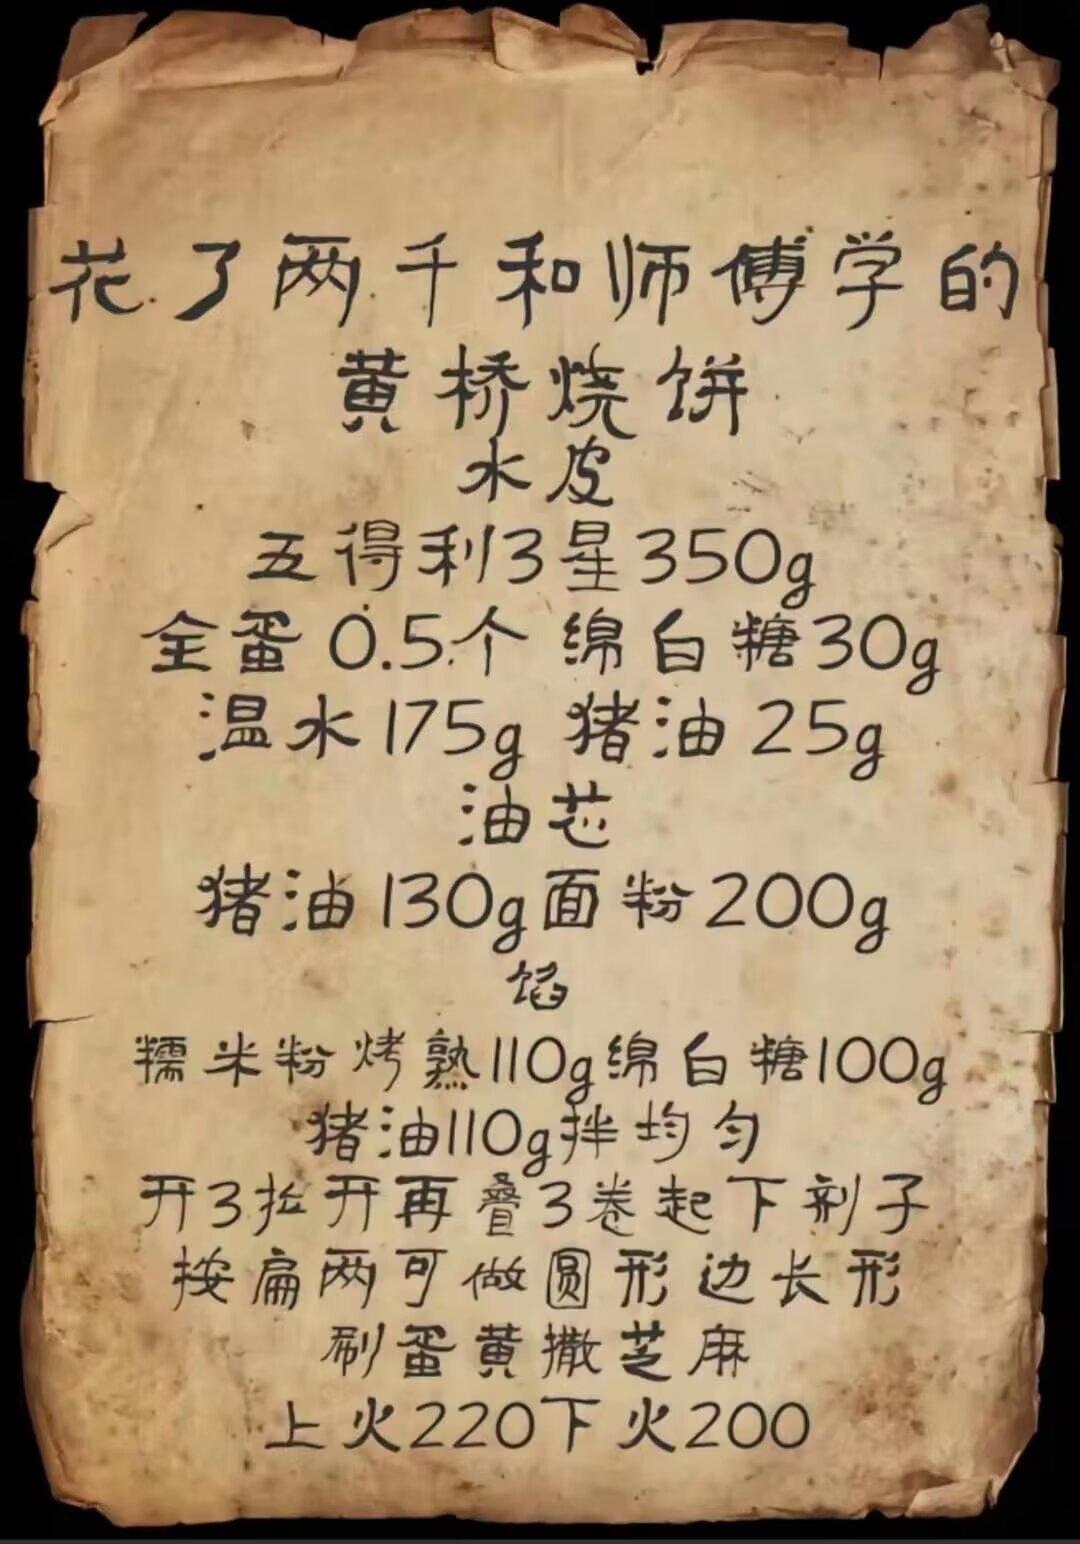 花了两千和师傅学的
黄桥烧饼
水皮
五得利3星350g
全蛋0.5个 绵白糖30g
温水175g 猪油25g
油芯
猪油130g面粉200g
馅
糯米粉烤熟110g绵白糖100g
猪油110g拌均匀
开3拉开再叠3卷起下剂子
按扁两可做圆形边长形
刷蛋黄撒芝麻
上火220下火200